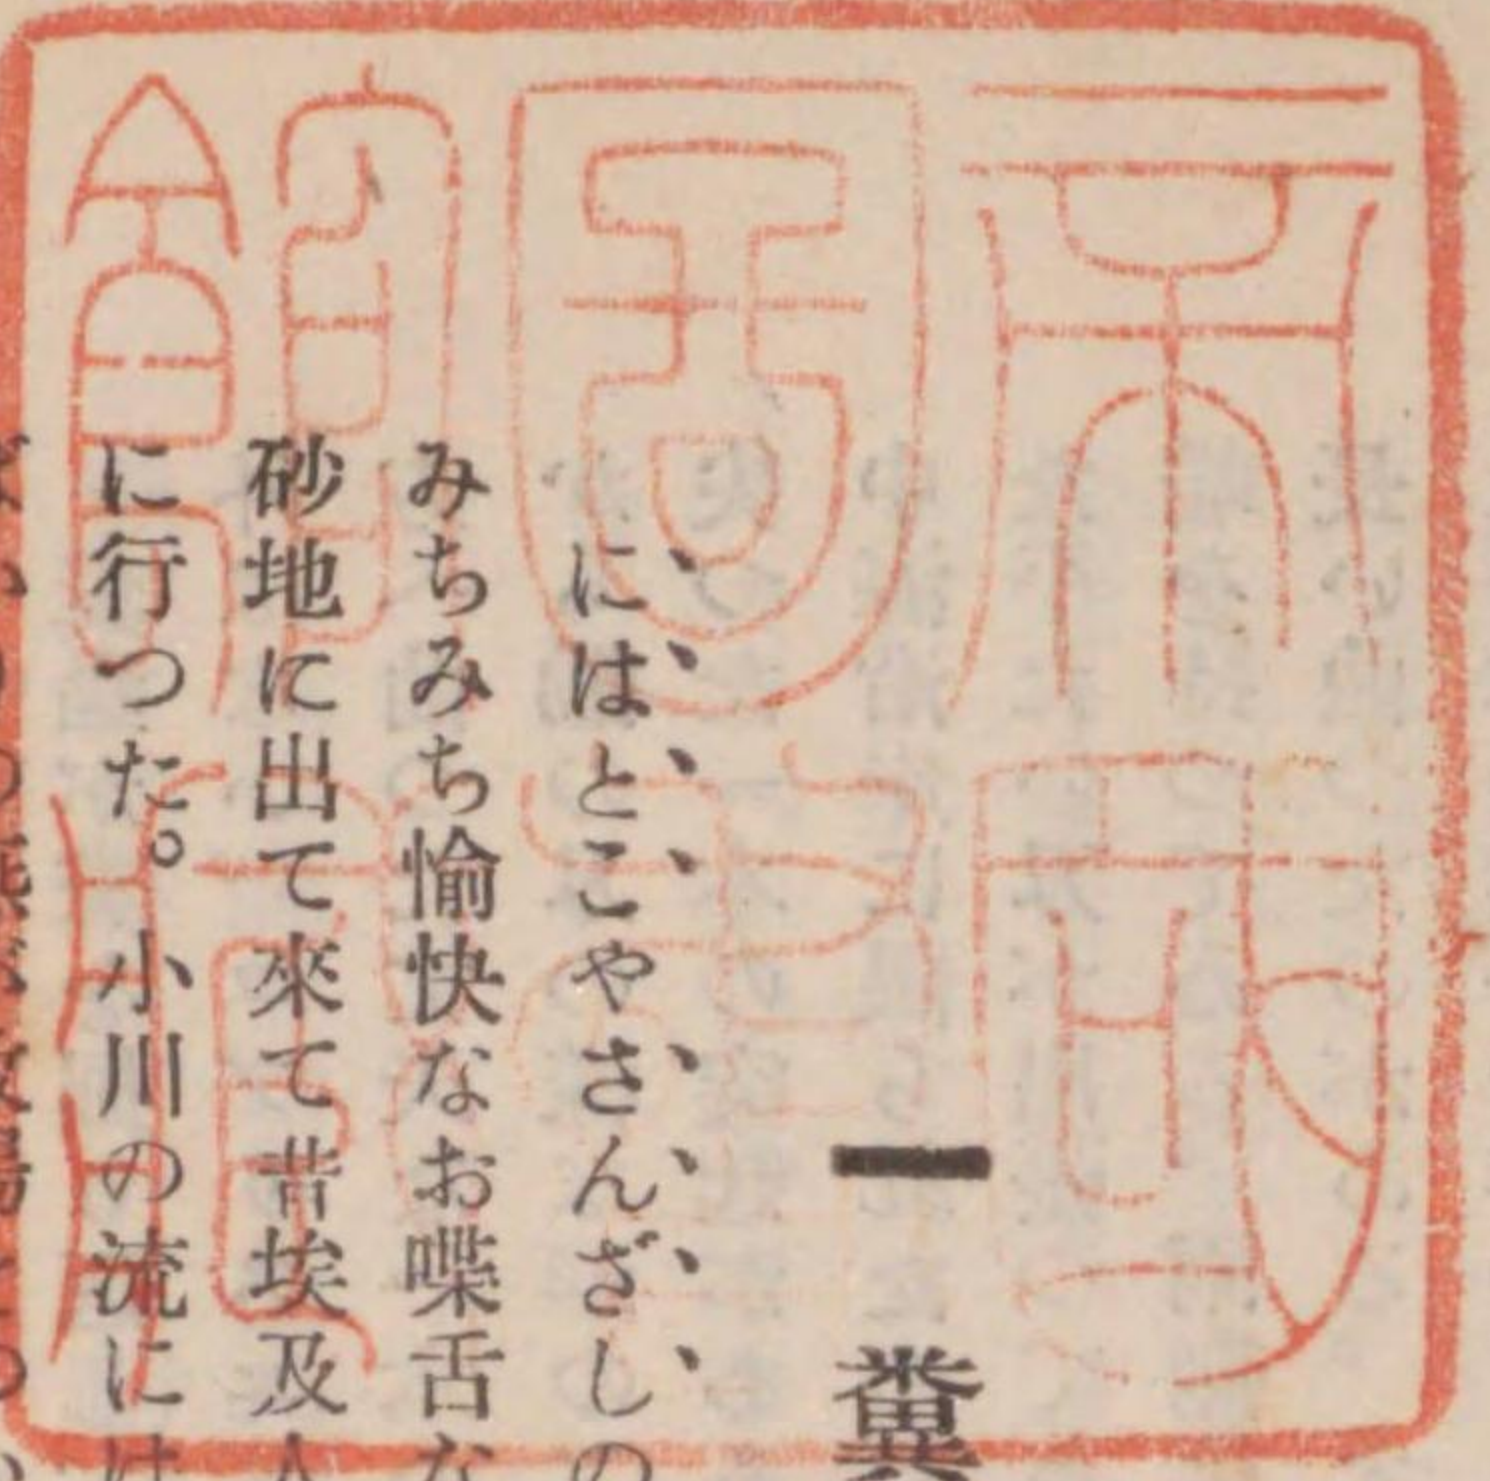 帝國
圖書
館藏
一 糞
にはとこやさんざしの
みちみち愉快なお喋舌な
砂地に出て來て昔埃及人
に行つた。小川の流には